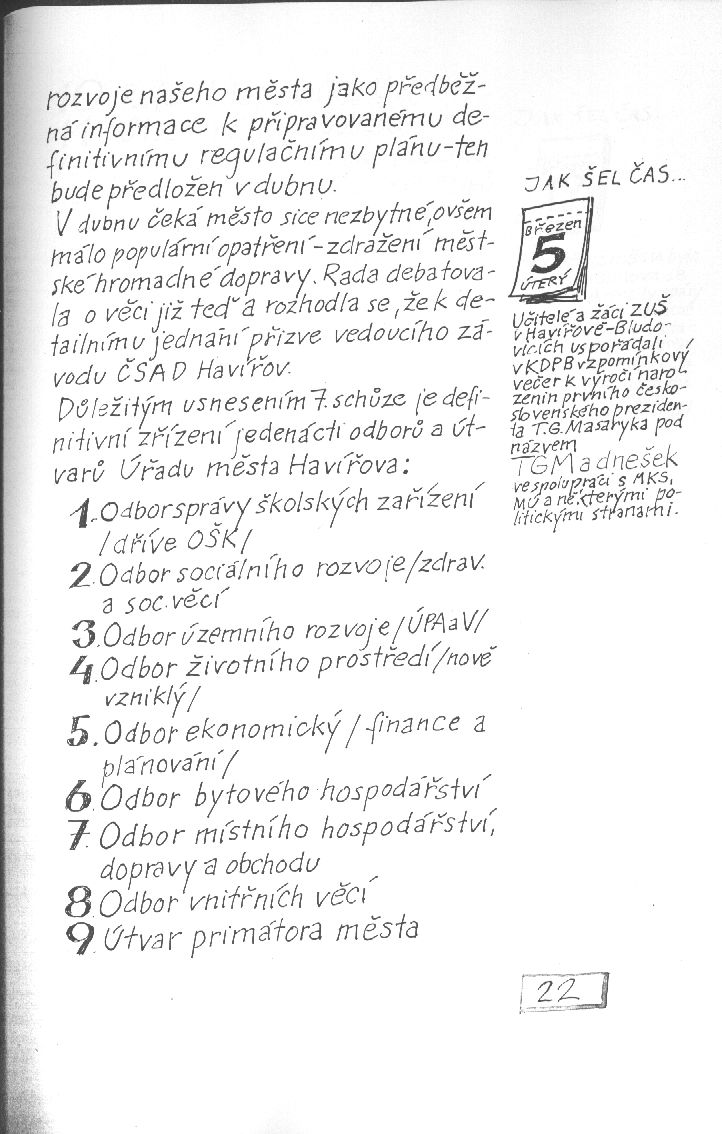 rozvoje našeho města jako předběž-
ná informace k připravovanému de-
finitivnímu regulačnímu plánu-ten
bude předložen v dubnu.
V dubnu čeká město sice nezbytné, ovšem
málo populární opatření - zdražení měst-
ské hromadné dopravy. Rada debatova-
la o věci již teď a rozhodla se, že k de-
tailnímu jednání přizve vedoucího zá-
vodu ČSAD Havířov.
Důležitým usnesením 7. schůze je defi-
nitivní zřízení jedenácti odborů a út-
varů Úřadu města Havířova:
1. Odbor správy školských zařízení
/dříve OŠK/
2. Odbor sociálního rozvoje/zdrav.
a soc. věcí
3. Odbor územního rozvoje/ÚPAaV/
4. Odbor životního prostředí/nově
vzniklý/
5. Odbor ekonomický /finance a
plánování/
6. Odbor bytového hospodářství
7. Odbor místního hospodářství,
dopravy a obchodu
8. Odbor vnitřních věcí
9. Útvar primátora města
JAK ŠEL ČAS...
BŘEZEN
5
ÚTERÝ
Učitelé a žáci ZUŠ
v Havířově-Bludo-
vicích uspořádali
v KDPB vzpomínkový
večer k výročí naro-
zenin prvního česko-
slovenského preziden-
ta T.G. Masaryka pod
názvem
TGM a dnešek
ve spolupráci s MKS,
MÚ a některými po-
litickými stranami.
22